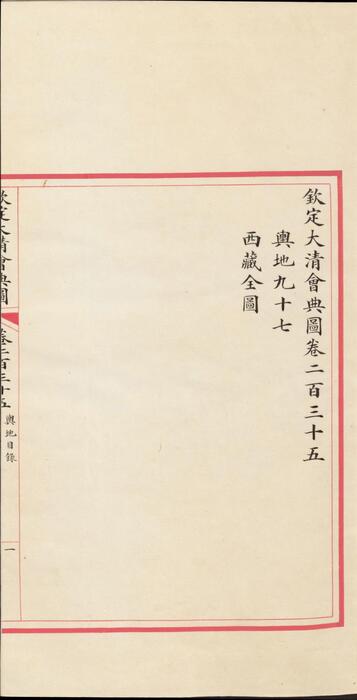 欽定大清會典圖卷二百三十五
輿地九十七
西藏全圖
欽定大清會典圖
卷二百三十五
輿地目錄
一